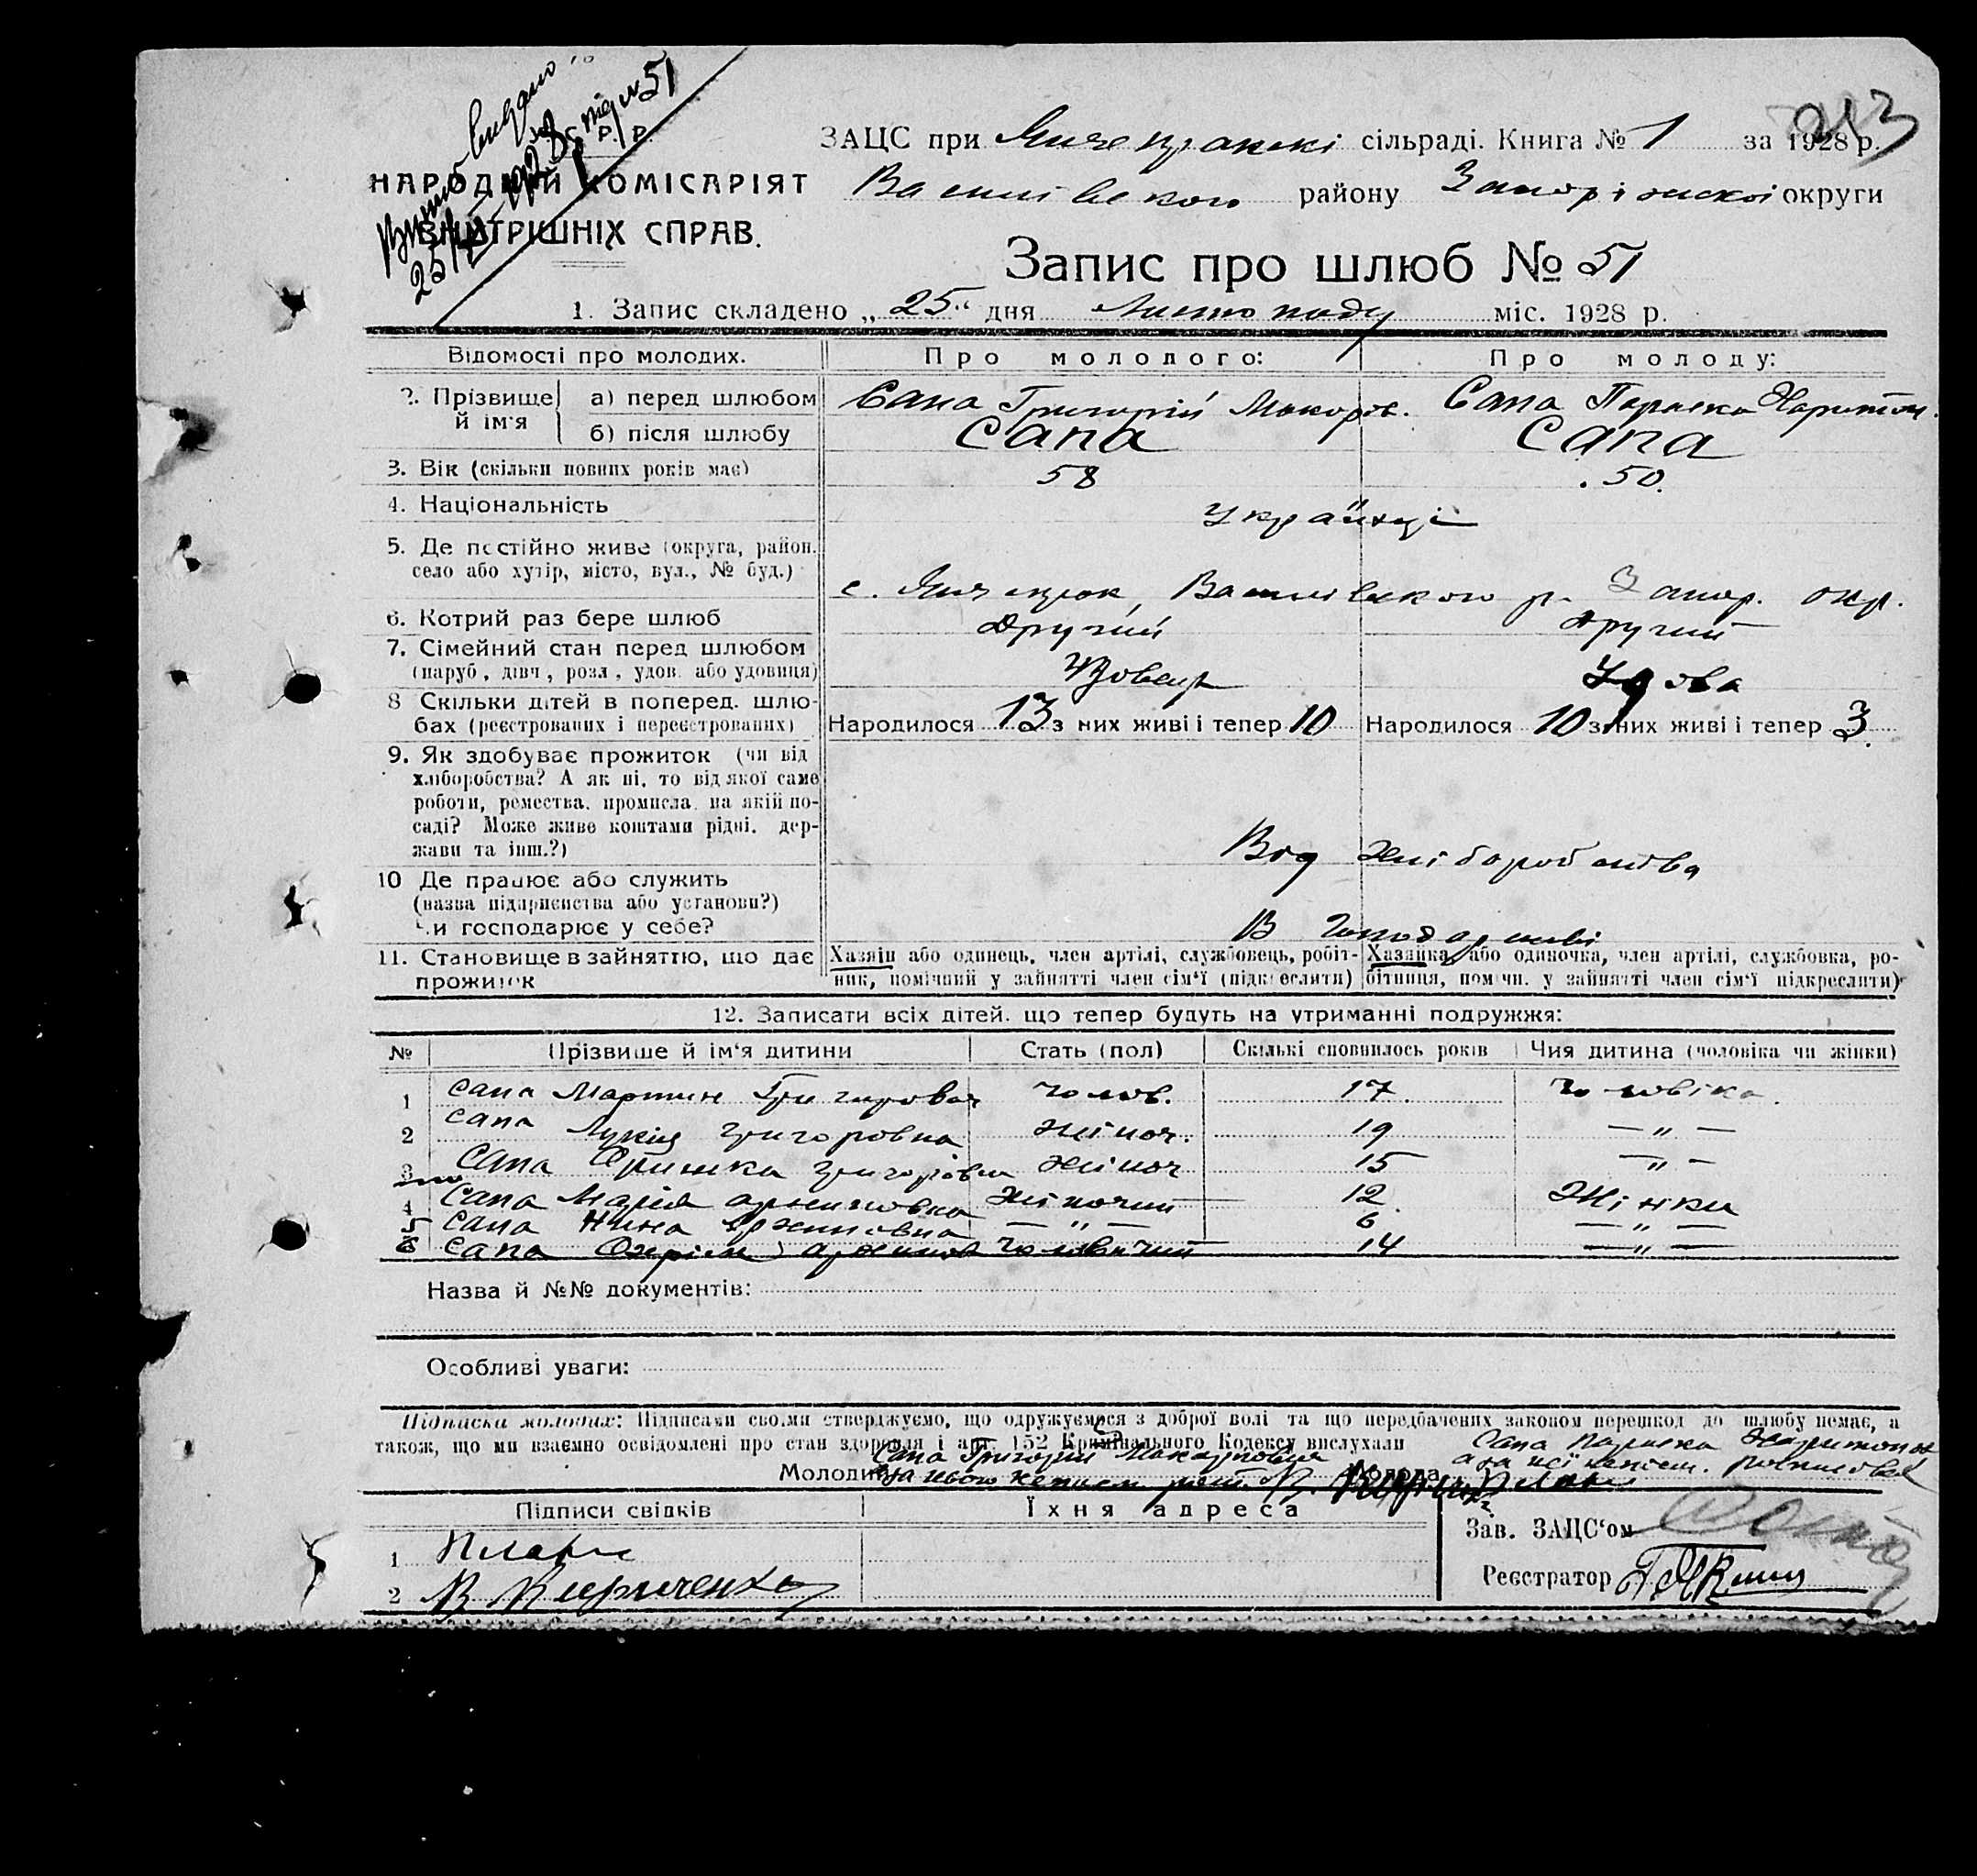 Витяг видано
25/XI-1928 р. під № 51
У.С.Р.Р.
НАРОДНІЙ КОМІСАРІЯТ
ВНУТРІШНІХ СПРАВ.
213
ЗАЦС при сільраді. Книга № 1 за 1928 р.
Василівського району Запоріжскоі округи
Запис про шлюб № 51
1. Запис складено „25“ дня Листопаду міс. 1928 р.
Відомості про молодих. Про молодого: Про молоду:
2. Прізвище й ім'я а) перед шлюбом Сапа Григорій Макаров. Сапа Параска Харитон.
б) після шлюбу Сапа Сапа
3. Вік (скільки повних років має) 58 50.
4. Національність Українці
5. Де постійно живе (округа, район,
село або хутір, місто, вул., № буд.)
с. Янчекрак, Василівського р. Запор. окр.
6. Котрий раз бере шлюб Другий Другий
7. Сімейний стан перед шлюбом
(паруб, дівч, розл, удов. або удовиця) Удова
8 Скільки дітей в поперед. шлю-
бах (реєстрованих і нереєстрованих) Народилося 13 з них живі і тепер 10 Народилося 10 з них живі і тепер 3.
9. Як здобуває прожиток (чи від
хліборобства? А як ні, то від якої саме
роботи, ремества, промисла, на якій по-
саді? Може живе коштами рідні, дер-
жави та інш.?) Від хліборобства
10 Де працює або служить
(назва підприємства або установи?)
Чи господарює у себе? В господарстві
11. Становище в зайняттю, що дає Хазяїн або одинець, член артілі, службовець, робіт- Хазяйка або одиночка, член артілі, службовка, ро-
прожиток ник, помічний у зайнятті член сім'ї (підкреслити) бітниця, помічн. у зайнятті член сім'ї підкреслити)
12. Записати всіх дітей, що тепер будуть на утриманні подружжя:
№ Прізвише й ім'я дитини Стать (пол) Скількі сповнилось років Чия дитина (чоловіка чи жінки)
1 Сапа Мартин Григорович чолов. 17 Чоловіка.
2 Сапа Лукія Григоровна жіноч. 19 — „ —
3 Сапа Оришка Григорівна жіноч 15 — „ —
4 Сапа Марія жіночий 12 Жінки
5 Сапа Нина — „ — 6 — „ —
6 Сапа чоловічий 14 — „ —
Назва й №№ документів:
Особливі уваги:
Підписка молодих: Підписами своїми стверджуємо, що одружуємося з доброї волі та що передбачених законом перешкод до шлюбу немає, а
також, що ми взаємно освідомлені про стан здоровля і арт. 152 Кримінального Кодексу вислухали
Молодий Сапа Григорий Макарович Молода Сапа Параска Харитонов
за нього неписьм. а за неї неписьм. росписався
Підписи свідків Їхня адреса
Зав. ЗАЦС'ом
1
2 В Кириченко
Реєстратор